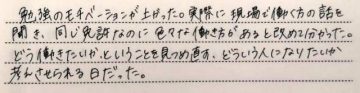 勉強のモチベーションが上がった。実際に現場で働く方の話を
聞き、同じ免許なのに色々な働き方があると改めて分かった。
どう働きたいか、ということを見つめ直す、どういう人になりたいか
考えさせられる日だった。